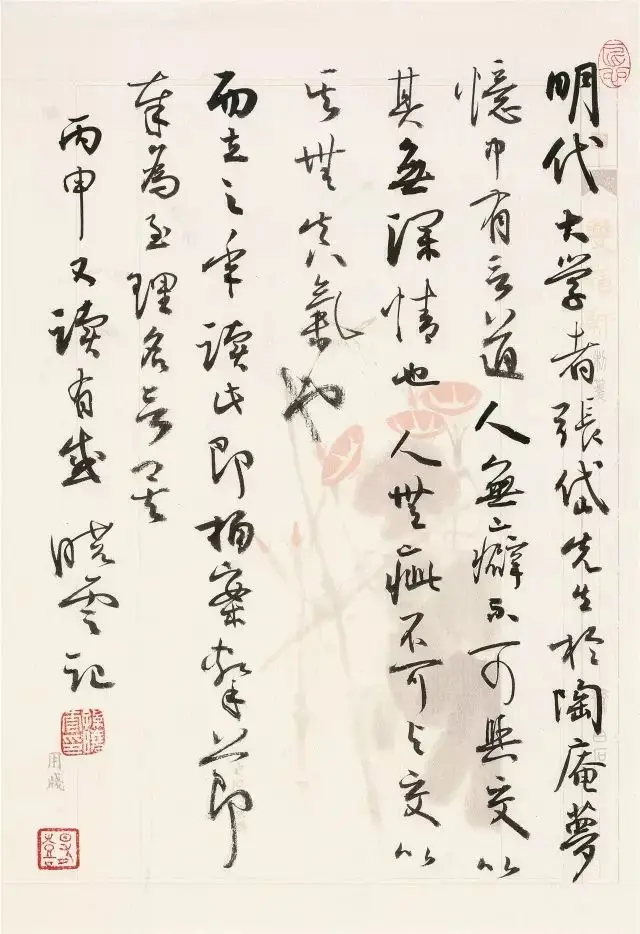 明代大学者張岱先生於陶庵夢
憶中有言道人無癖不可與交以
其無深情也人無疵不可与交以
其無真氣也
而立之年讀此即拍案擊節
奉為至理名言矣
丙申又讀有感 晓雲记
用牋